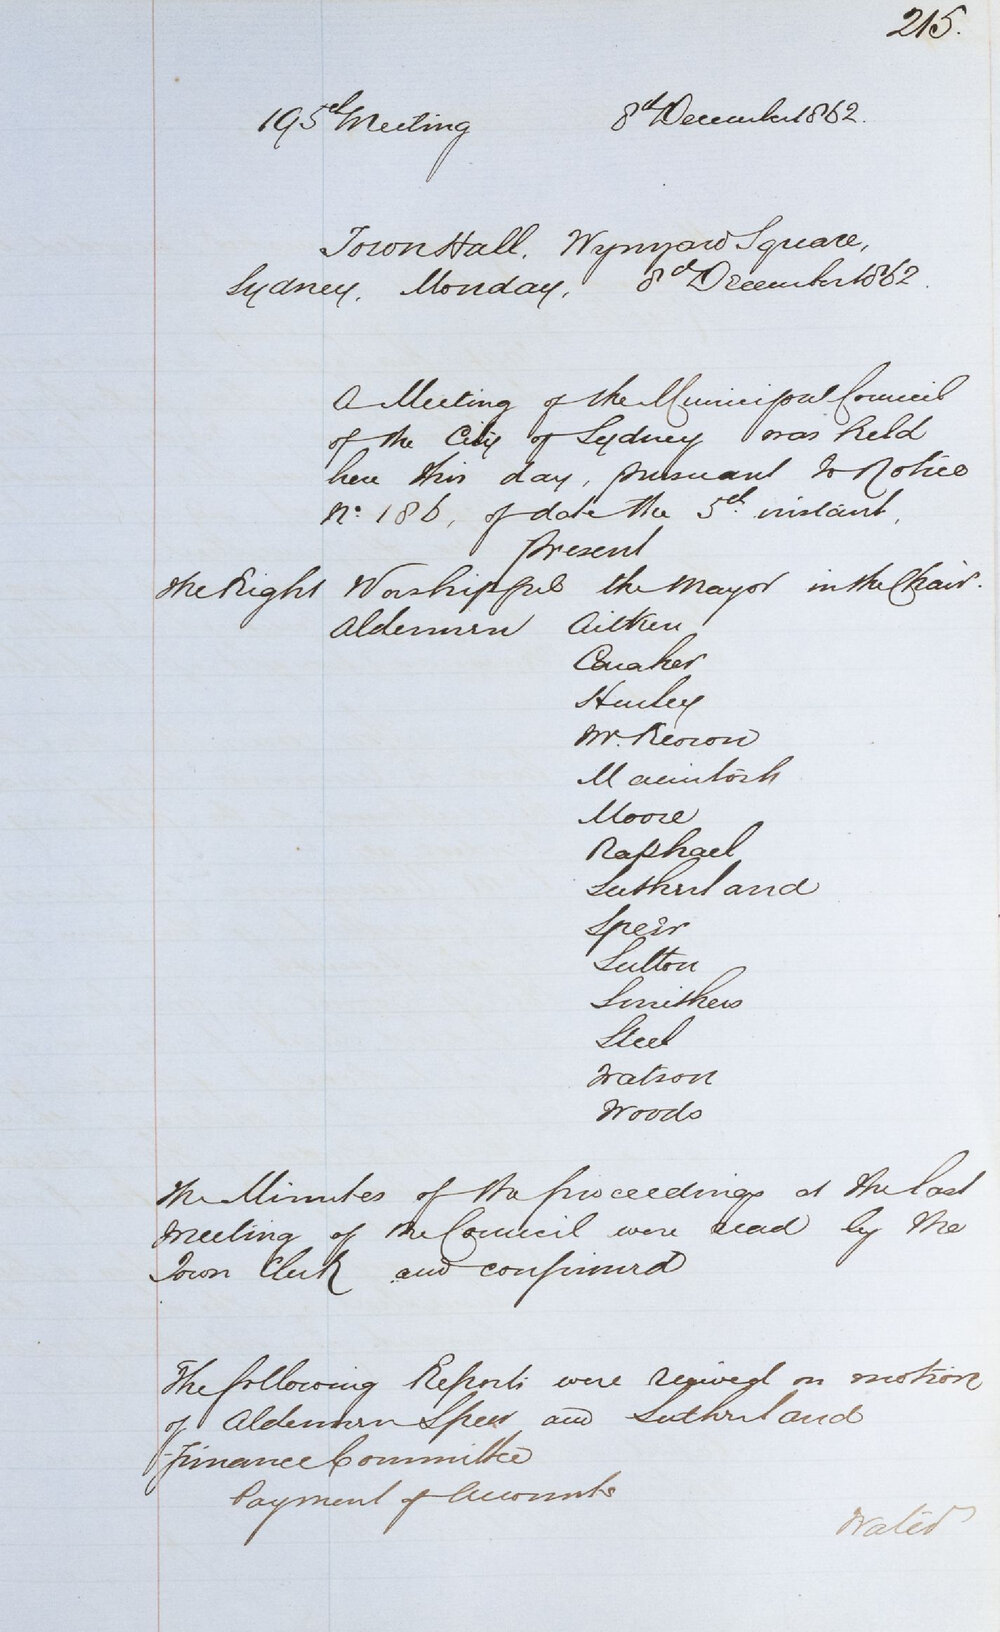 215.
195th Meeting 8th December 1862.
Town Hall. Wynyard Square,
Sydney. Monday, 8th December 1862.
A Meeting of the Municipal Council
of the City of Sydney was held
here this day, pursuant to Notice
No. 186, of date the 5th instant,
present
The Right Worshipful the Mayor in the Chair.
Aldermen Aitken
Caraher
Hurley
Mc.Keown
Macintosh
Moore
Raphael
Sutherland
Speer
Sutton
Smithers
Steel
Watson
Woods
The Minutes of the proceedings at the last
meeting of the Council were read by the
Town Clerk and confirmed
The following Reports were received on motion
of Aldermen Speer and Sutherland
Finance Committee
Payment of Accounts
Water